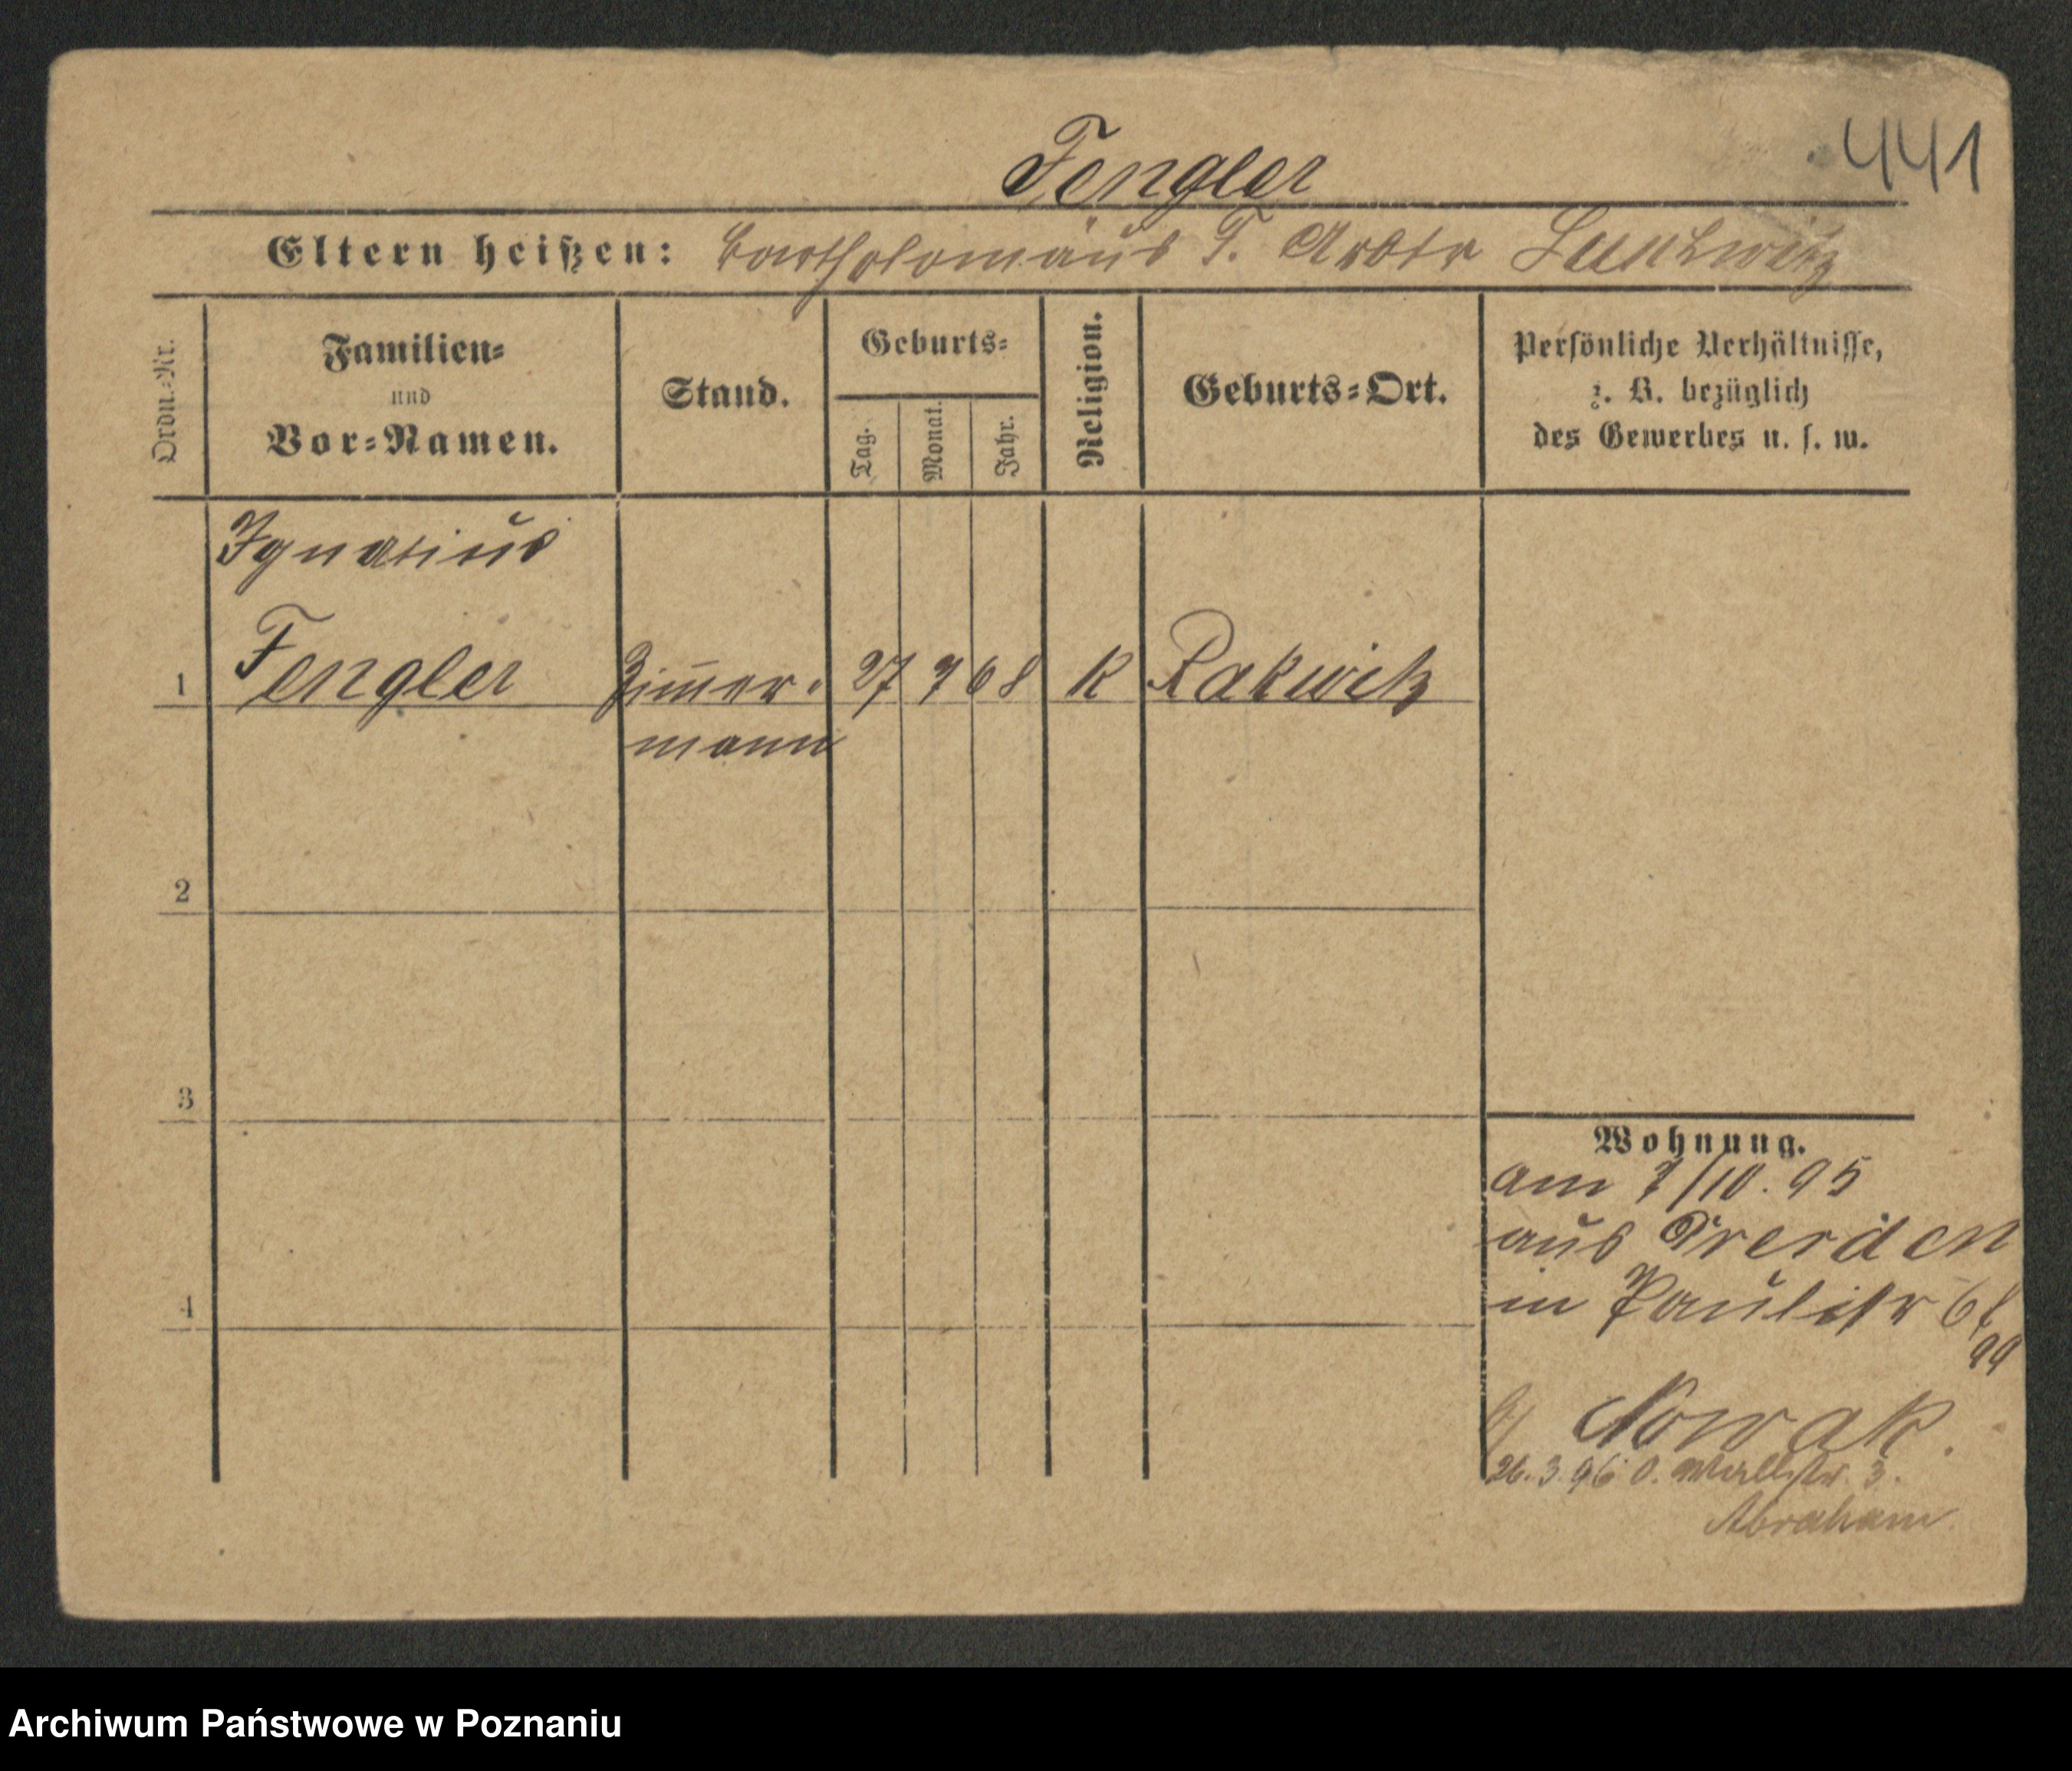 441
Fengler
Eltern heißen: Bartholomäus F. Arbtr
Ordn.=Nr.
Familien=
und
Vor=Namen.
Stand.
Geburts=
Tag.
Monat.
Jahr.
Religion.
Geburts=Ort.
Persönliche Verhältnisse,
z. B. bezüglich
des Gewerbes u. s. w.
Ignatius
1 Fengler Zimmer= 27 7 68 K Rakwitz
mann
2
3
4
Wohnung.
am 7/10. 95
aus Dresden
in Paulistr
Nowak.
26. 3. 96 O. Wallstr. 3.
Abraham
Archiwum Państwowe w Poznaniu